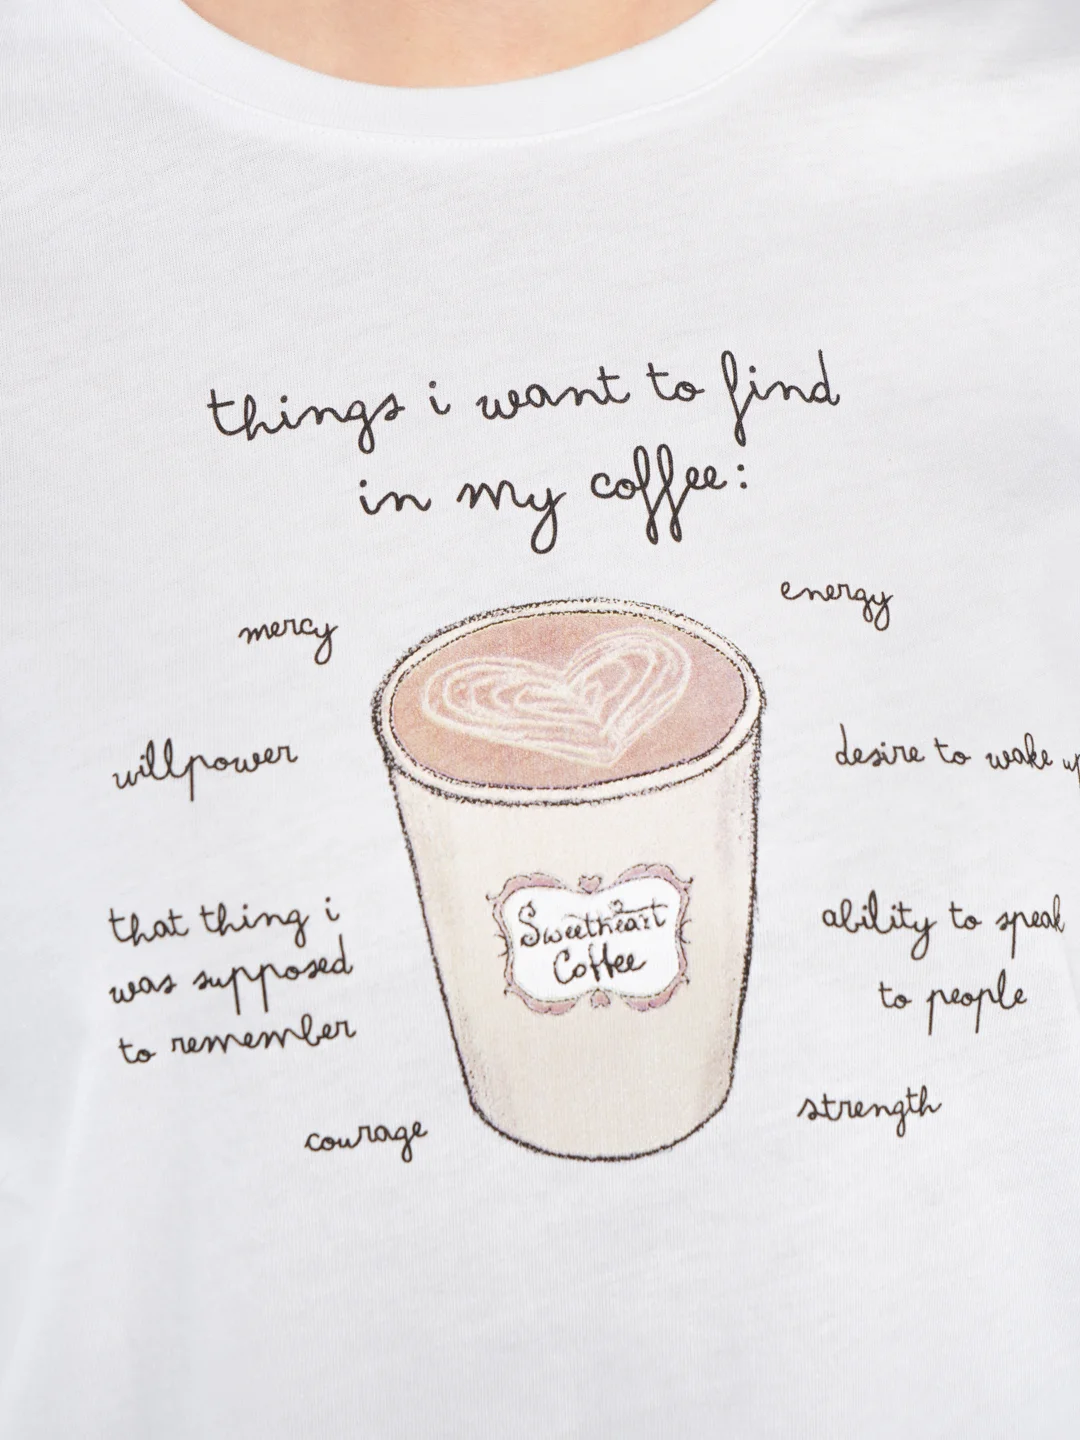 things i want to find
in my coffee:
mercy
energy
willpower
desire to wake up
that thing i
was supposed
to remember
ability to speak
to people
Sweetheart
Coffee
courage
strength